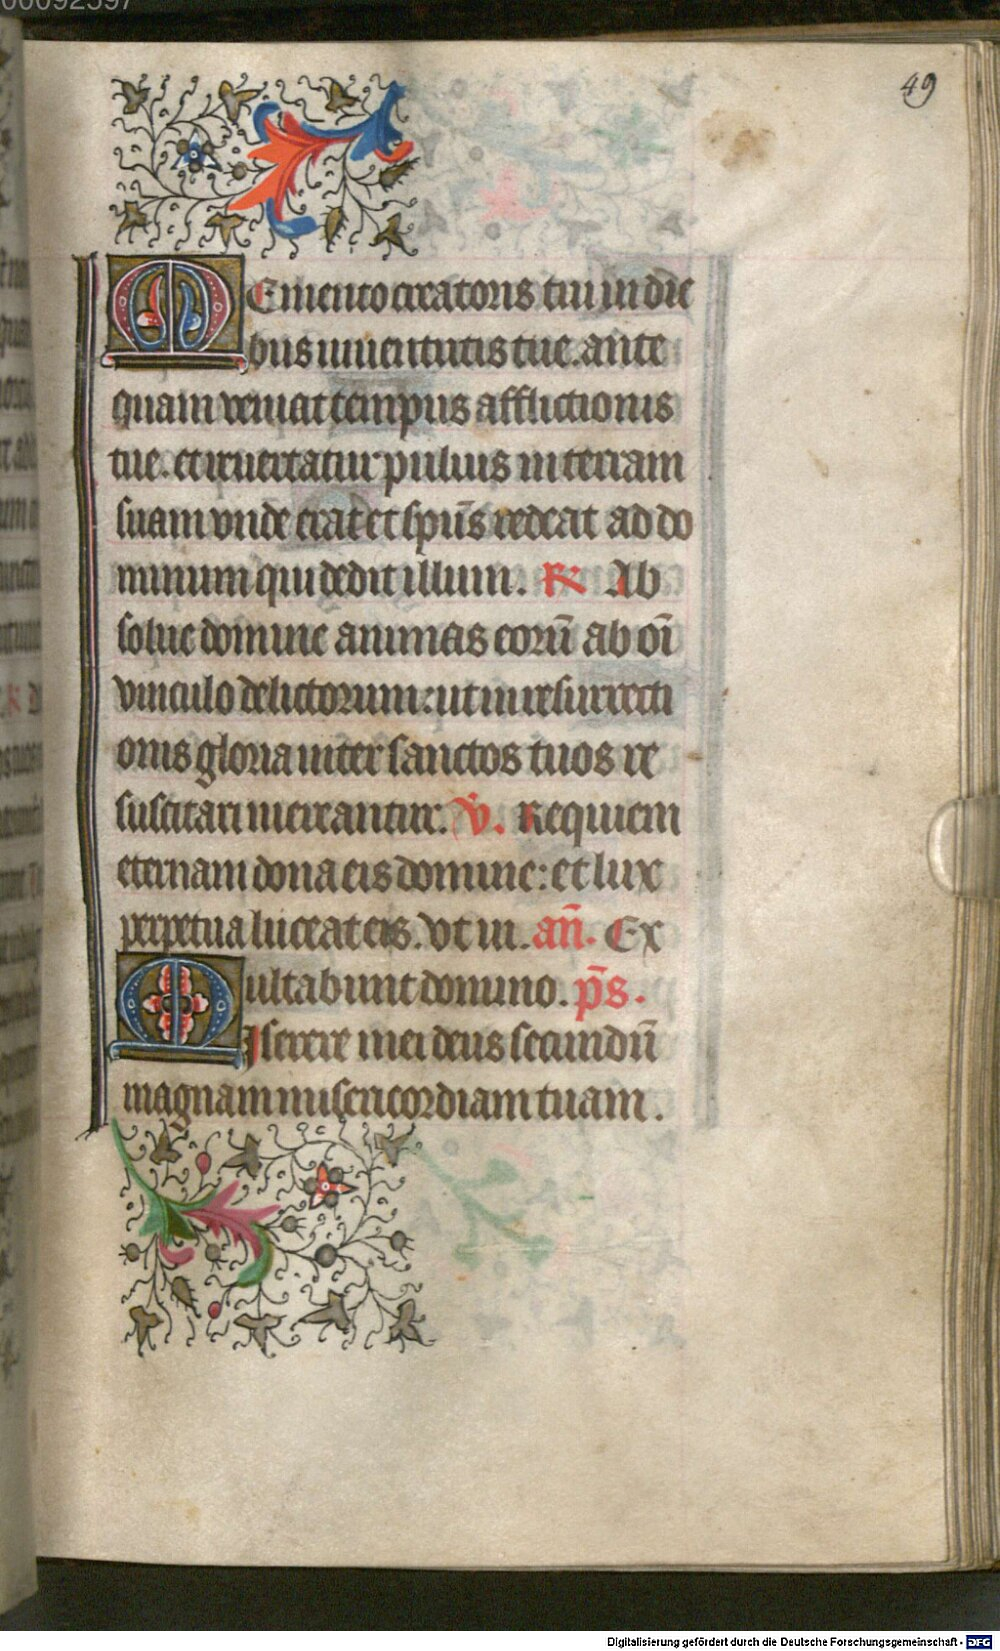 00092597
49
MEmento creatoris tui in die
bus iuuentutis tue. ante
quam veniat tempus afflictionis
tue. et reuertatur puluis in terram
suam vnde erat et sp̄us redeat ad do
minum qui dedit illum. R Ab
solue domine animas eorū ab oī
vinculo delictorum: ut in resurrecti
onis gloria inter sanctos tuos re
suscitari mereantur. V̇. Requiem
eternam dona eis domine: et lux
perpetua luceat eis. Vt in. an̄. Ex
ultabunt domino. ps̄.
MIserere mei deus secundū
magnam misericordiam tuam.
Digitalisierung gefördert durch die Deutsche Forschungsgemeinschaft - DFG